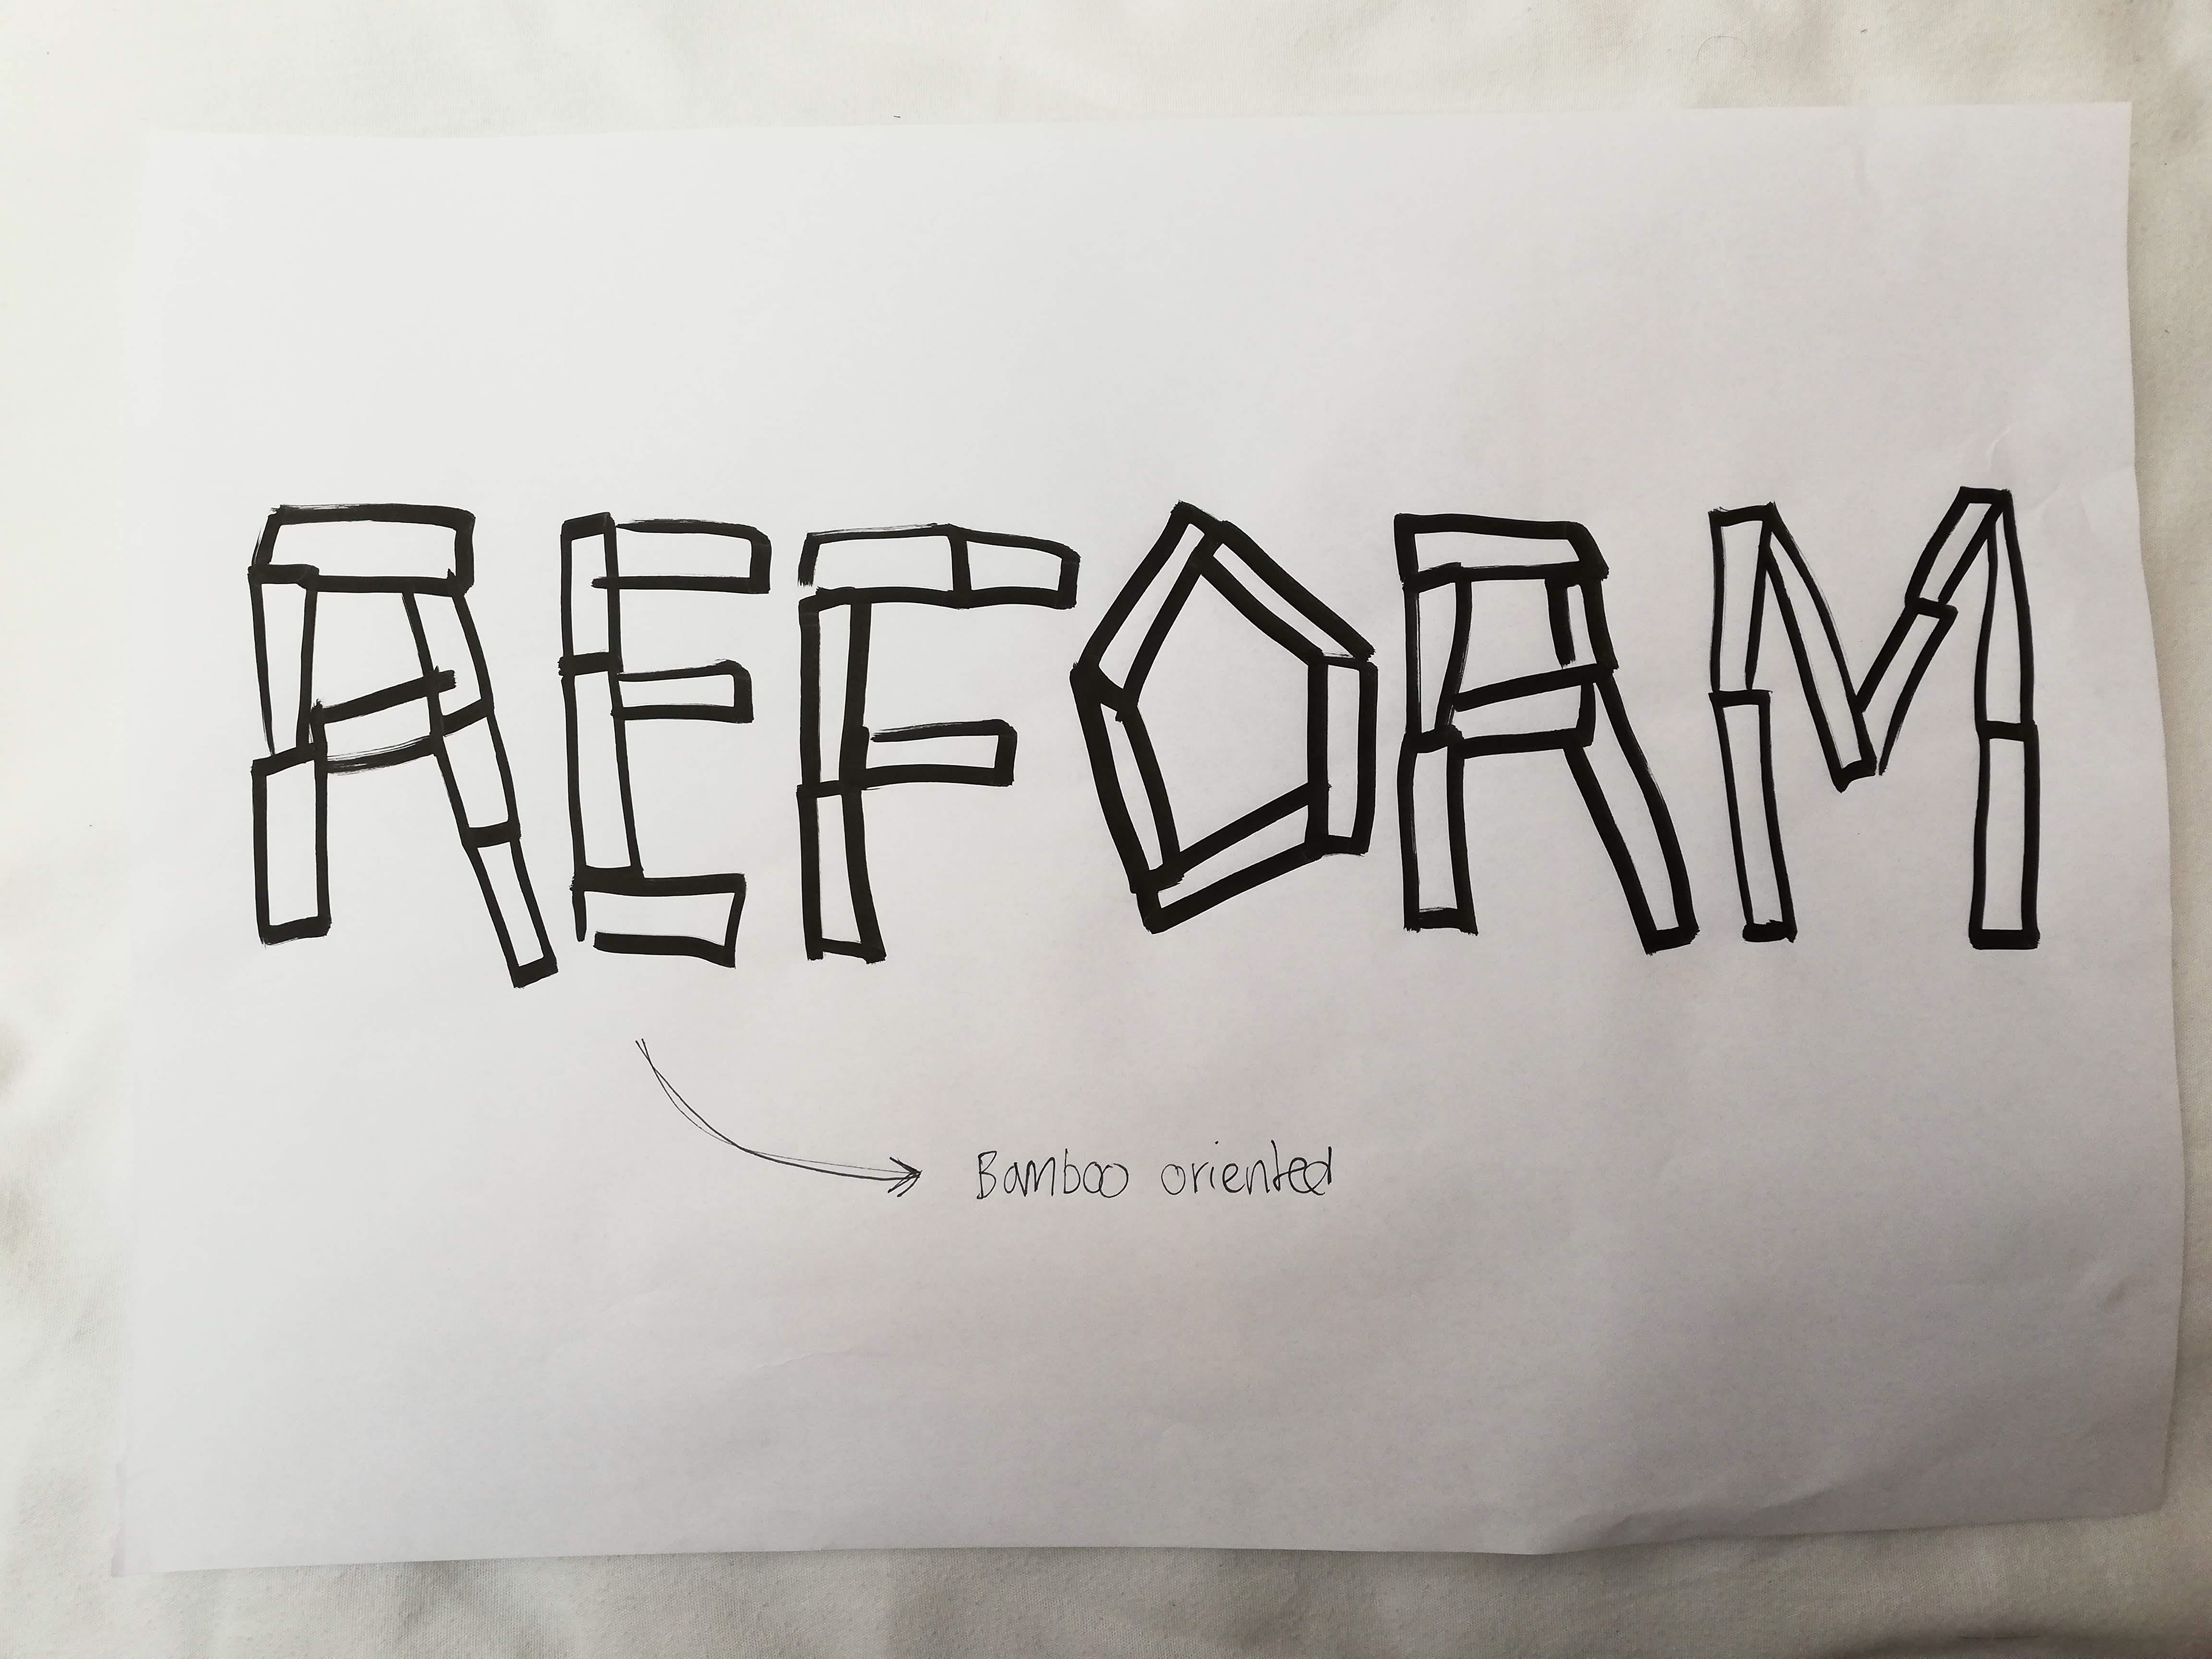 REFORM
Bamboo oriented